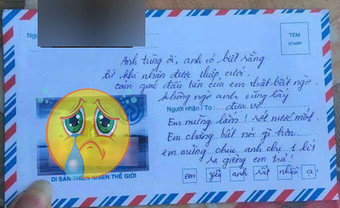 TEM
STAMP
Anh từng ơi, anh có biết rằng
từ khi nhận được thiệp cưới.
cảm giác đầu tiên của em thật bất ngờ
không ngờ anh cũng lấy
Người nhận / To: được vợ
Em mừng lắm! Rớt nước mắt.
Em chẳng biết nói gì hơn
em mừng chúc anh chị 1 lít
ra giêng em trả!
DI SẢN THIÊN NHIÊN THẾ GIỚI
em yêu anh rất nhiều ạ